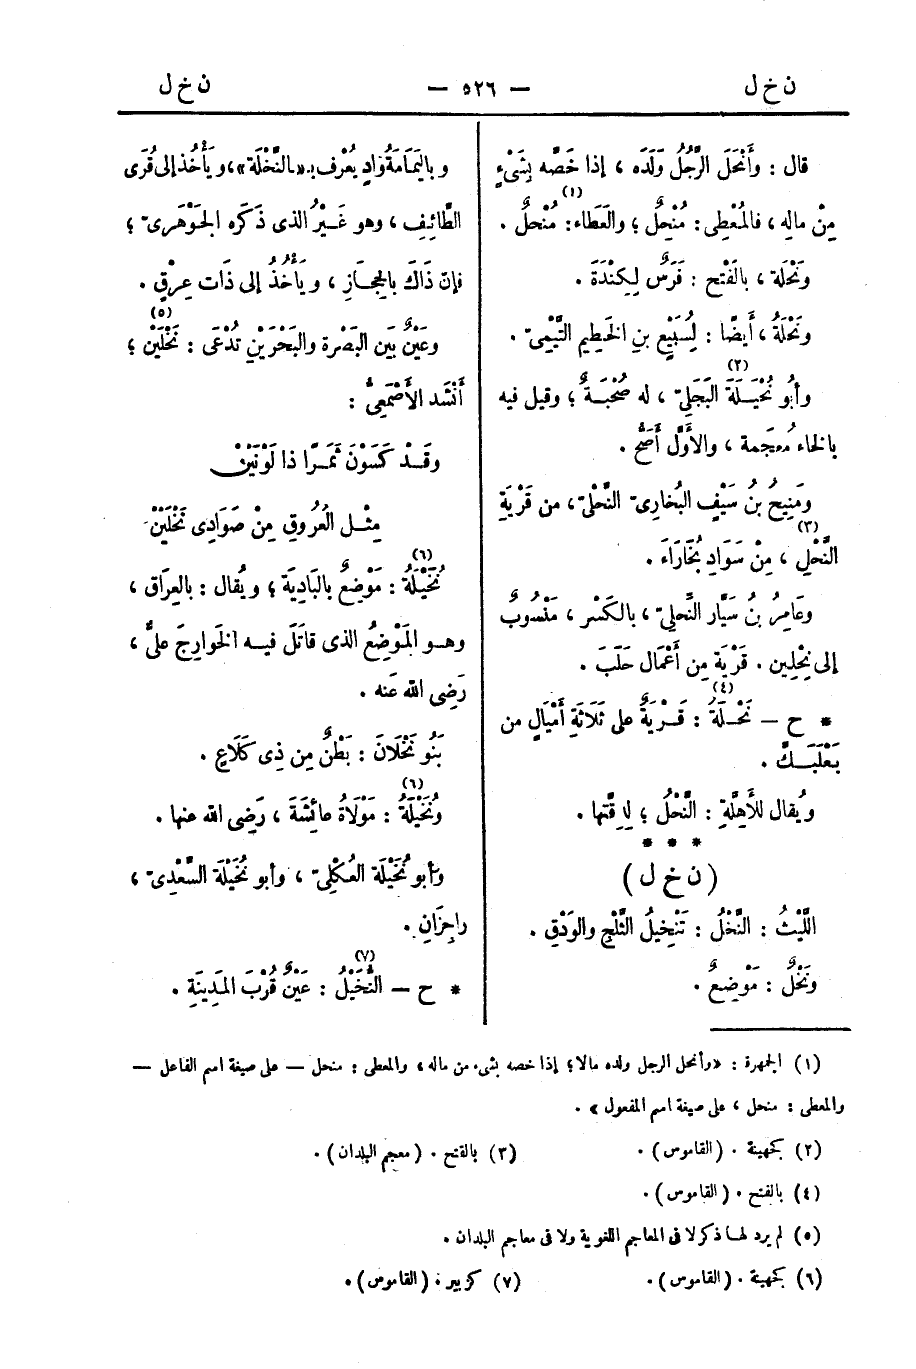 ن خ ل — ٥٢٦ — ن خ ل
قال : وأَنْحَلَ الرَّجُلُ ولَدَه ، إذا خَصَّه بِشَىْءٍ
مِنْ مالِه ، فالمُعْطِى: مُنْحِلٌ ؛ والعَطَاء: مُنْحَلٌ (١) .
ونَحْلَة ، بالفَتْح : فَرَسٌ لِكِنْدَةَ .
ونَحْلَةُ ، أَيضًا : لِسُبَيْعِ بنِ الخَطِيمِ التَّيْمِىّ .
وأبُو نُحَيْلَةَ (٢) البَجَلِىّ ، له صُحْبَةٌ ؛ وقيل فيه
بالخاء مُعجَمة ، والأوَّل أصَحُّ .
ومَنِيحُ بنُ سَيْفٍ البُخارِىّ النَّحْلىّ، من قَرْيَةِ
النَّحْلِ (٣) ، مِنْ سَوَادِ بُخَارَاءَ .
وعَامِرُ بنُ سَيَّار النِّحلِىّ ، بالكَسْر ، مَنْسُوب
إلى نِحْلِين . قَرْيَة مِن أَعْمَال حَلَبَ .
* ح — نَحْلَةُ (٤) : قَرْيَةٌ على ثَلَاثَةِ أَمْيَالٍ من
بَعْلَبَكَّ .
ويُقال للأَهِلَّةِ : النَّحْلُ ؛ لِدِقَّتِها .
* * *
(ن خ ل)
اللَّيْثُ : النَّخْلُ : تَنْخِيلُ الثَّلْجِ والوَدْقِ .
ونَخْلٌ : مَوْضِعٌ .
وباليَمَامَةِ وَادٍ يُعْرَف بـ«النَّخْلَة»، ويَأْخُذ إلى قُرَى
الطَّائِفِ ، وهو غَيْرُ الذى ذَكَره الجَوْهَرِىّ ؛
فإنّ ذَاكَ بالحِجَازِ ، ويَأْخُذُ إلى ذَات عِرْقٍ .
وعَيْنٌ بَين البَصْرة والبَحْرَيْنِ تُدْعَى : نَخْلَيْن (٥) ؛
أَنْشَد الأَصْمَعِىُّ :
وقَدْ كَسَوْنَ ثَمَرًا ذا لَوْنَيْنْ
مِثْلَ العُرُوقِ مِنْ صَوَادِى نَخْلَيْنْ
نُخَيْلَةُ (٦) : مَوْضِعٌ بالبَادِيَة ؛ ويُقال : بالعِرَاق ،
وهو المَوْضِعُ الذى قاتَلَ فيه الخَوارِجَ علىٌّ ،
رَضِى الله عَنه .
بَنُو نَخْلَانَ : بَطْنٌ مِن ذِى كَلَاعٍ .
ونُخَيْلَةُ (٦) : مَوْلَاةُ عائِشَةَ ، رَضِى الله عنها .
وأبو نُخَيْلَة العُكْلِىّ ، وأبو نُخَيْلَة السَّعْدِىّ ،
راجِزَانِ .
* ح — النُّخَيْلُ (٧) : عَيْنٌ قُرْبَ المَدِينَةِ .
(١) الجمهرة : «وأنحل الرجل ولده مالا؛ إذا خصه بشىء من ماله ، والمعطى : منحل — على صيغة اسم الفاعل —
والمعطى : منحل ، على صيغة اسم المفعول» .
(٢) كجهينة . (القاموس) . (٣) بالفتح . (معجم البلدان) .
(٤) بالفتح . (القاموس) .
(٥) لم يرد لها ذكر لا فى المعاجم اللغوية ولا فى معاجم البلدان .
(٦) كجهينة . (القاموس) . (٧) كزبير . (القاموس) .